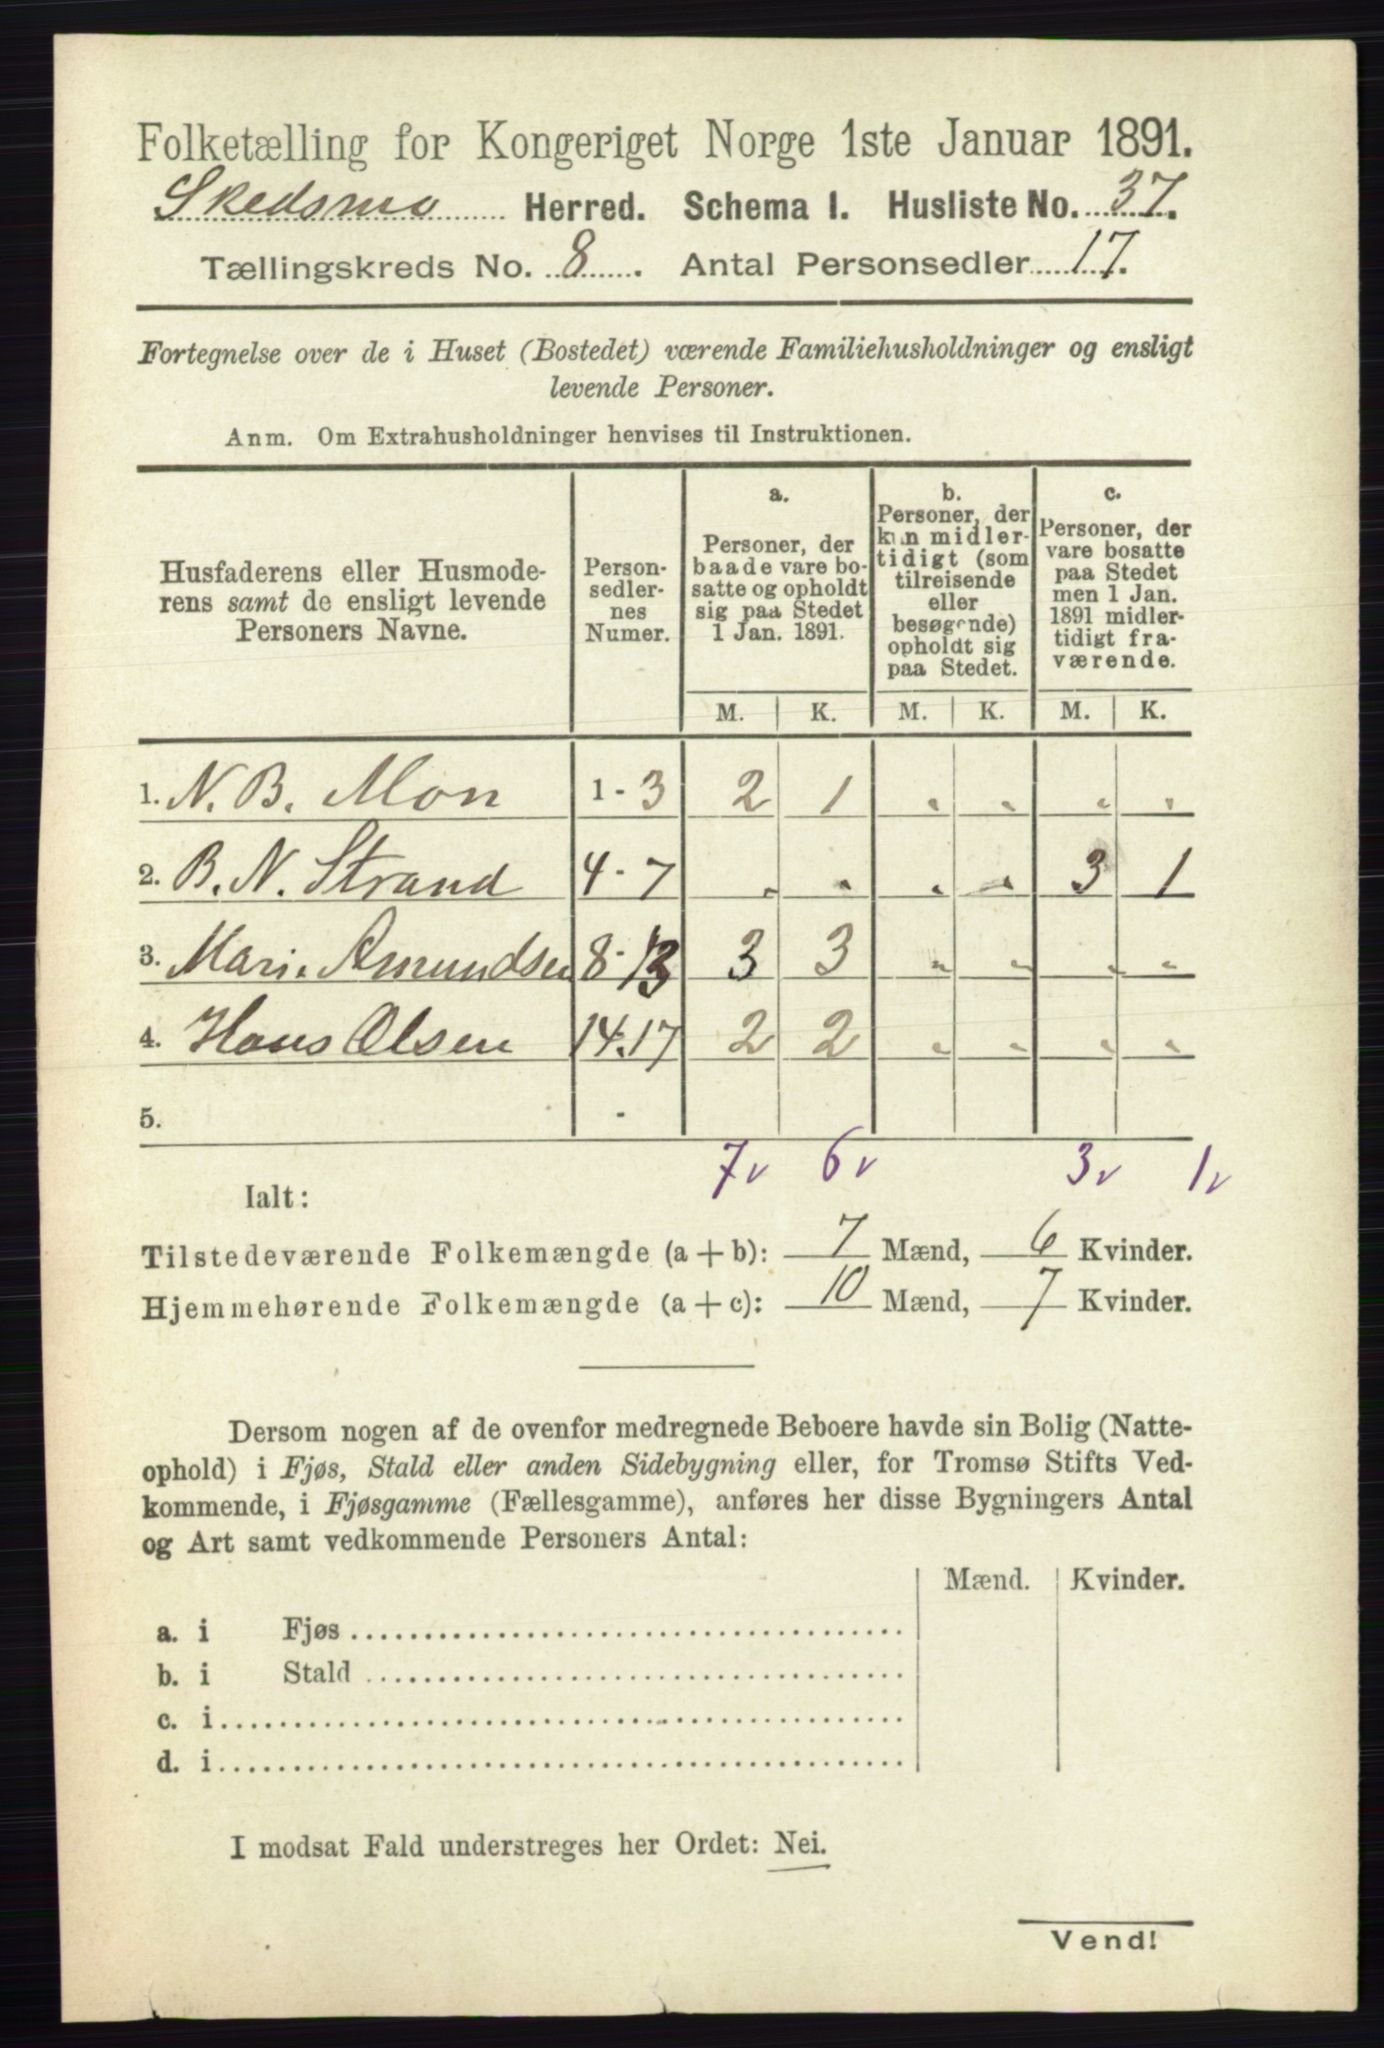 Folketælling for Kongeriget Norge 1ste Januar 1891.
Skedsmo Herred. Schema I. Husliste No. 37.
Tællingskreds No. 8. Antal Personsedler 17.
Fortegnelse over de i Huset (Bostedet) værende Familiehusholdninger og ensligt
levende Personer.
Anm. Om Extrahusholdninger henvises til Instruktionen.
Husfaderens eller Husmode-
rens samt de ensligt levende
Personers Navne.
Person-
sedler-
nes
Numer.
a.
Personer, der
baade vare bo-
satte og opholdt
sig paa Stedet
1 Jan. 1891.
b.
Personer, der
kun midler-
tidigt (som
tilreisende
eller
besøgende)
opholdt sig
paa Stedet.
c.
Personer, der
vare bosatte
paa Stedet
men 1 Jan.
1891 midler-
tidigt fra-
værende.
M. K. M. K. M. K.
1. N. B. Mon 1 - 3 2 1 " " " "
2. B. N. Strand 4 - 7 " " " " 3 1
3. Mari Amundsen 8 - 13 3 3 " " " "
4. Hans Olsen 14-17 2 2 " " " "
5. -
7v 6v 3v 1v
Ialt:
Tilstedeværende Folkemængde (a + b): 7 Mænd, 6 Kvinder.
Hjemmehørende Folkemængde (a + c): 10 Mænd, 7 Kvinder.
Dersom nogen af de ovenfor medregnede Beboere havde sin Bolig (Natte-
ophold) i Fjøs, Stald eller anden Sidebygning eller, for Tromsø Stifts Ved-
kommende, i Fjøsgamme (Fællesgamme), anføres her disse Bygningers Antal
og Art samt vedkommende Personers Antal:
Mænd. Kvinder.
a. i Fjøs
b. i Stald
c. i
d. i
I modsat Fald understreges her Ordet: Nei.
Vend!